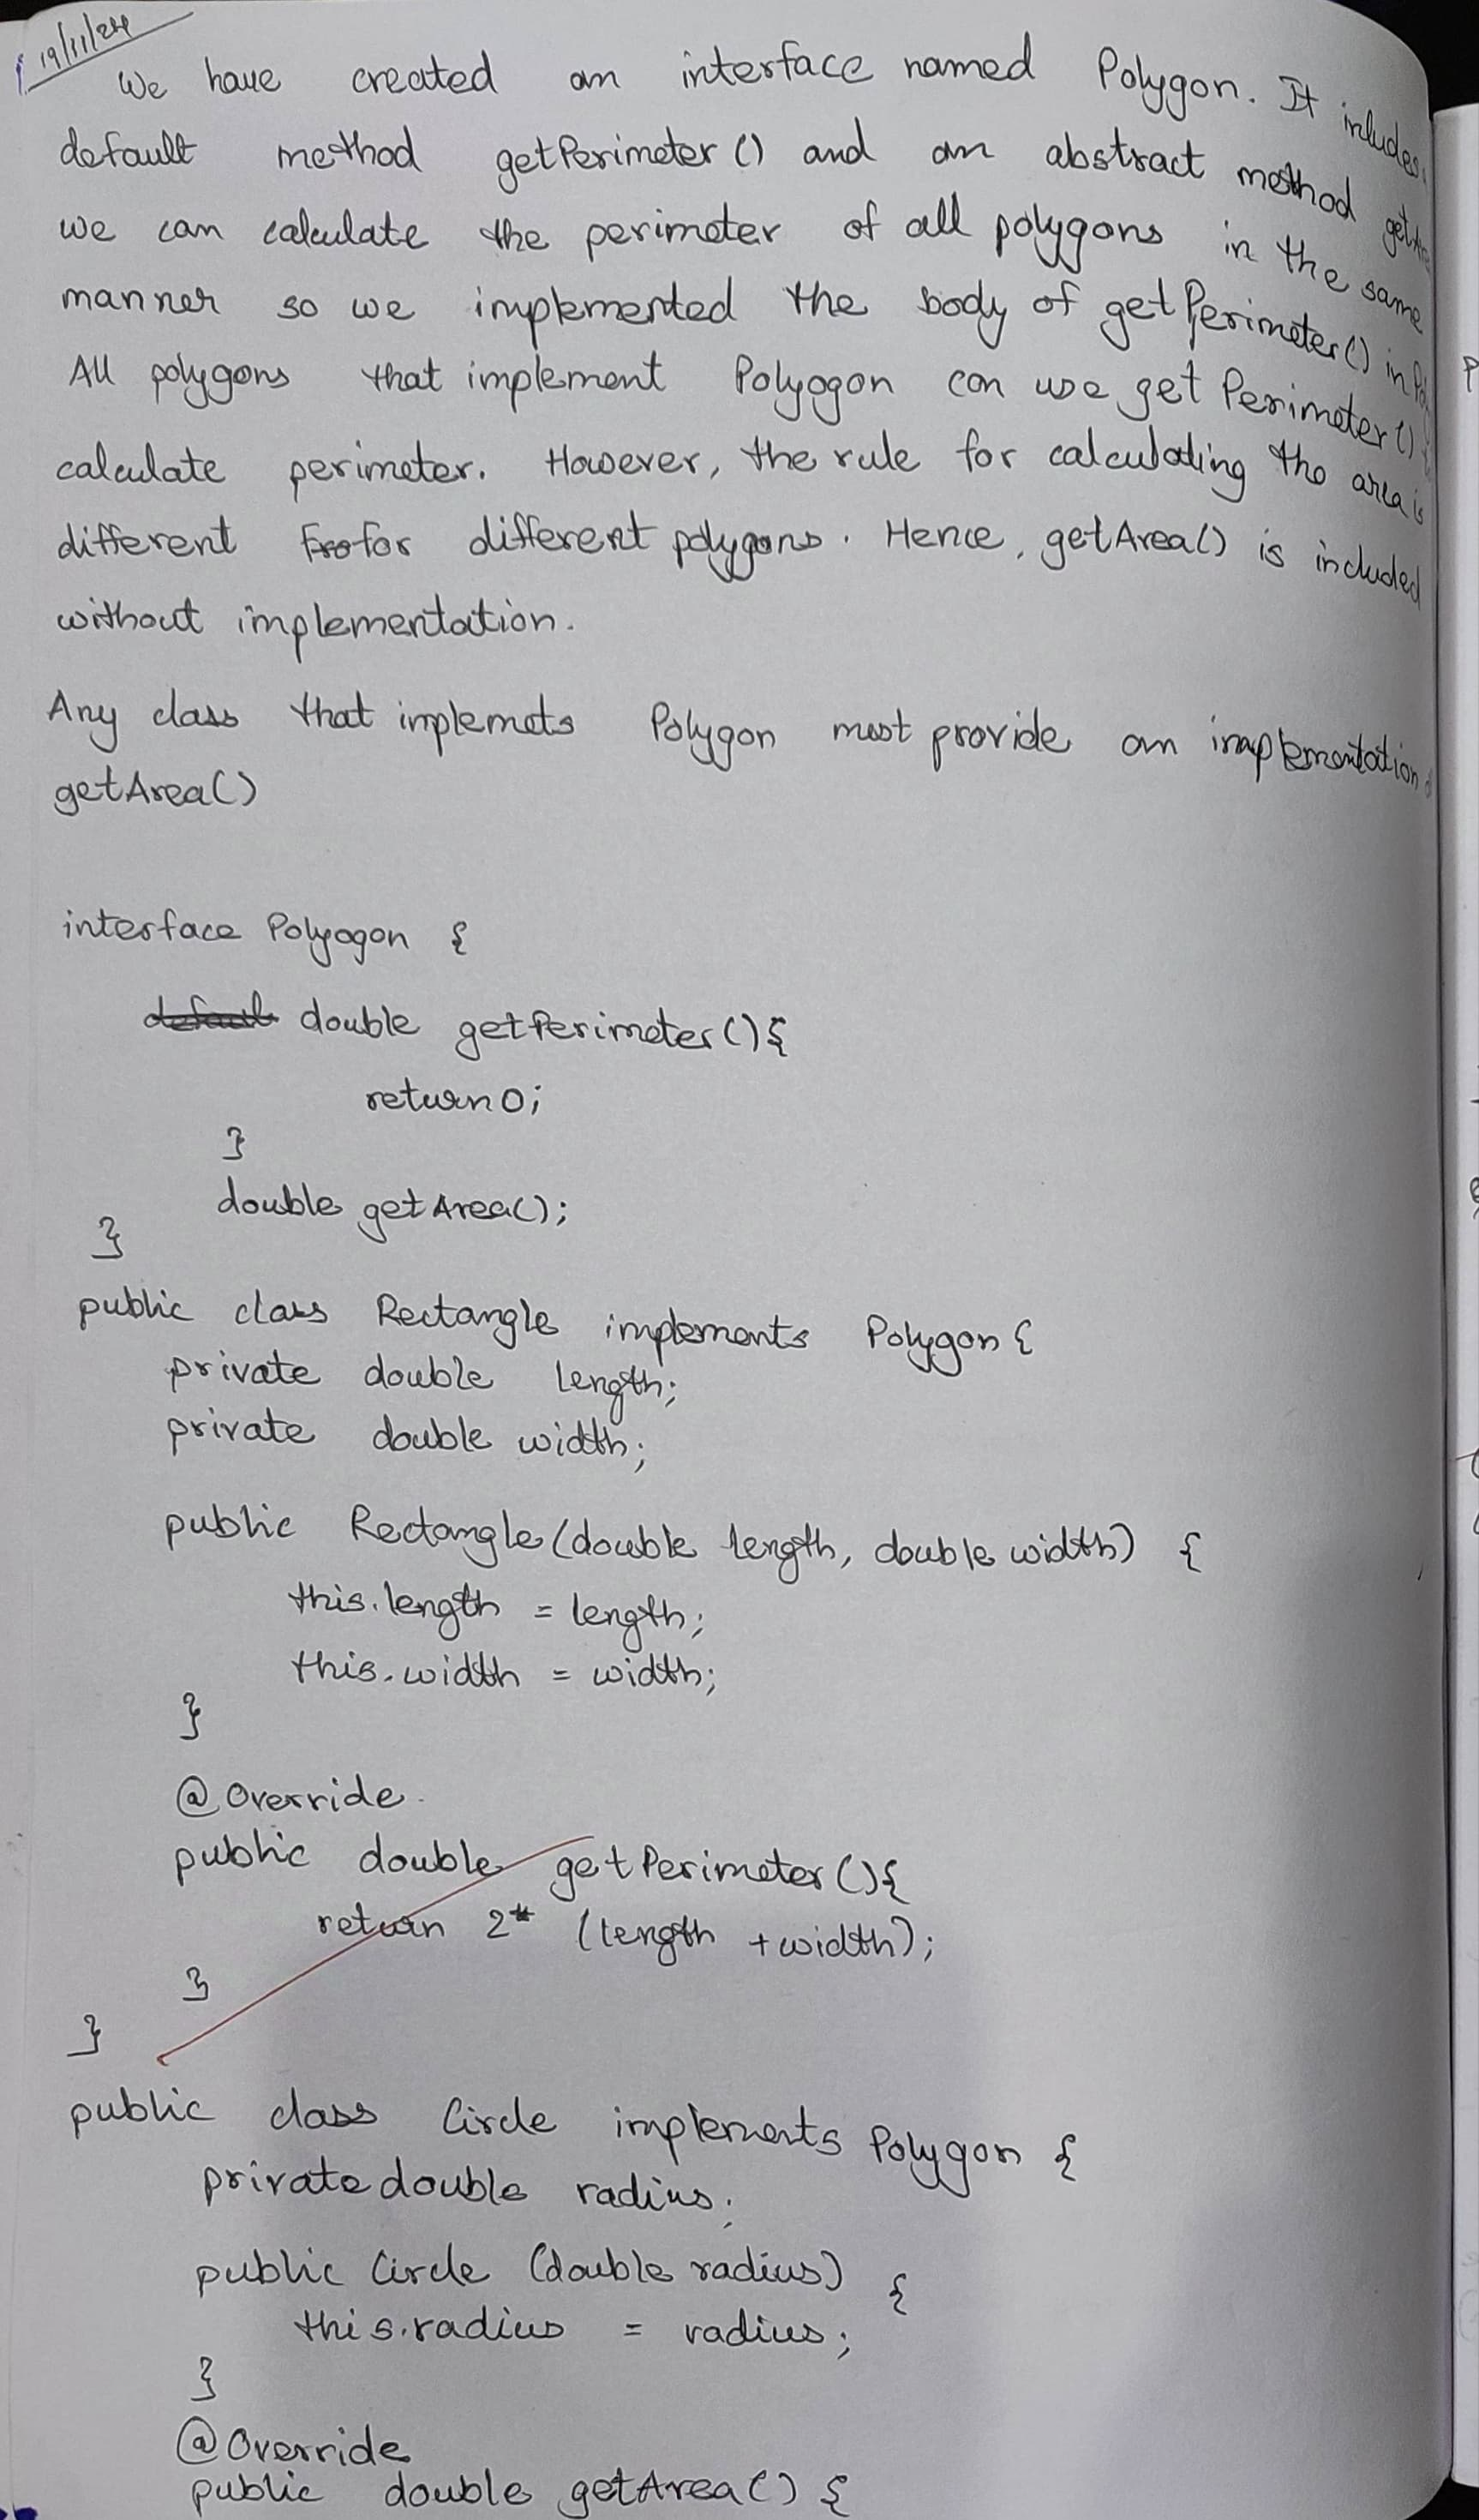 19/11/24
We have created an interface named Polygon. It inludes
default method getPerimeter () and an abstract method
we can calculate the perimeter of all polygons in the same
manner so we implemented the body of getPerimeter() in
All polygons that implement Polyogon can use getPerimeter()
calculate perimeter. However, the rule for calculating the area is
different for different polygons. Hence, getArea() is included
without implementation.
Any class that implemets Polygon must provide an implementation
getArea()
interface Polyogon {
default double getPerimeter(){
return 0;
}
double getArea();
}
public class Rectangle implements Polygon {
private double length;
private double width;
public Rectangle (double length, double width) {
this.length = length;
this.width = width;
}
@Override
public double getPerimeter(){
return 2* (length + width);
}
}
public class Circle implements Polygon {
private double radius;
public Circle (double radius) {
this.radius = radius;
}
@Override
public double getArea() {